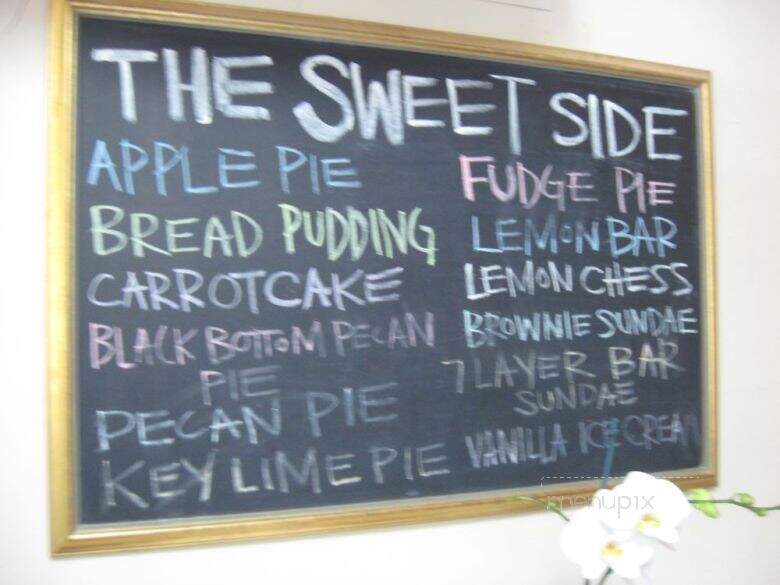 THE SWEET SIDE
APPLE PIE
BREAD PUDDING
CARROT CAKE
BLACK BOTTOM PECAN
PIE
PECAN PIE
KEY LIME PIE
FUDGE PIE
LEMON BAR
LEMON CHESS
BROWNIE SUNDAE
7 LAYER BAR
SUNDAE
VANILLA ICE CREAM
menupix